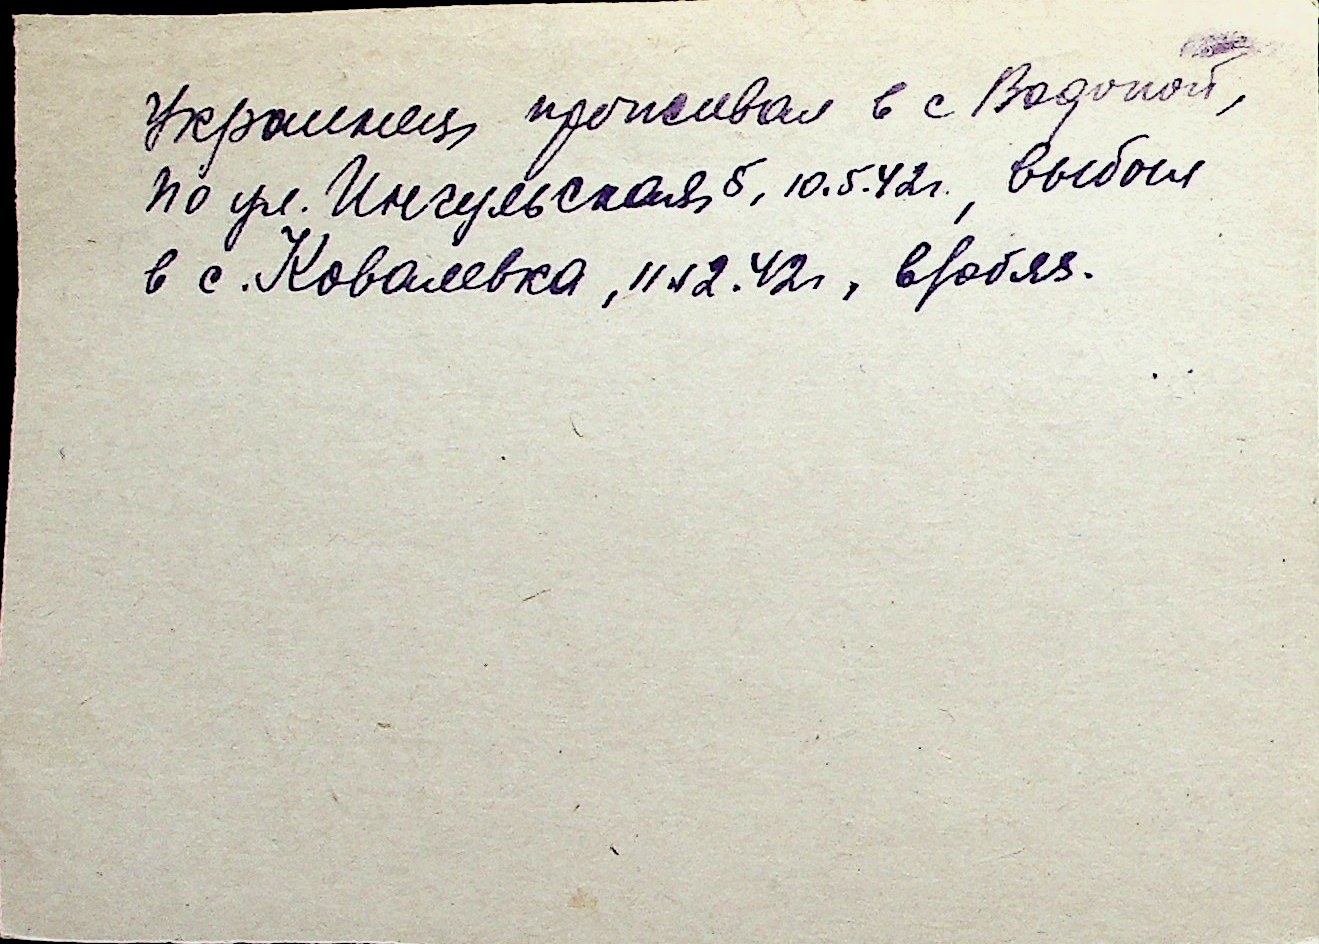 Украинец, проживал в с Водопой,
по ул. Ингульская, 5, 10.5.42г., выбыл
в с. Ковалевка, 11.12.42г,